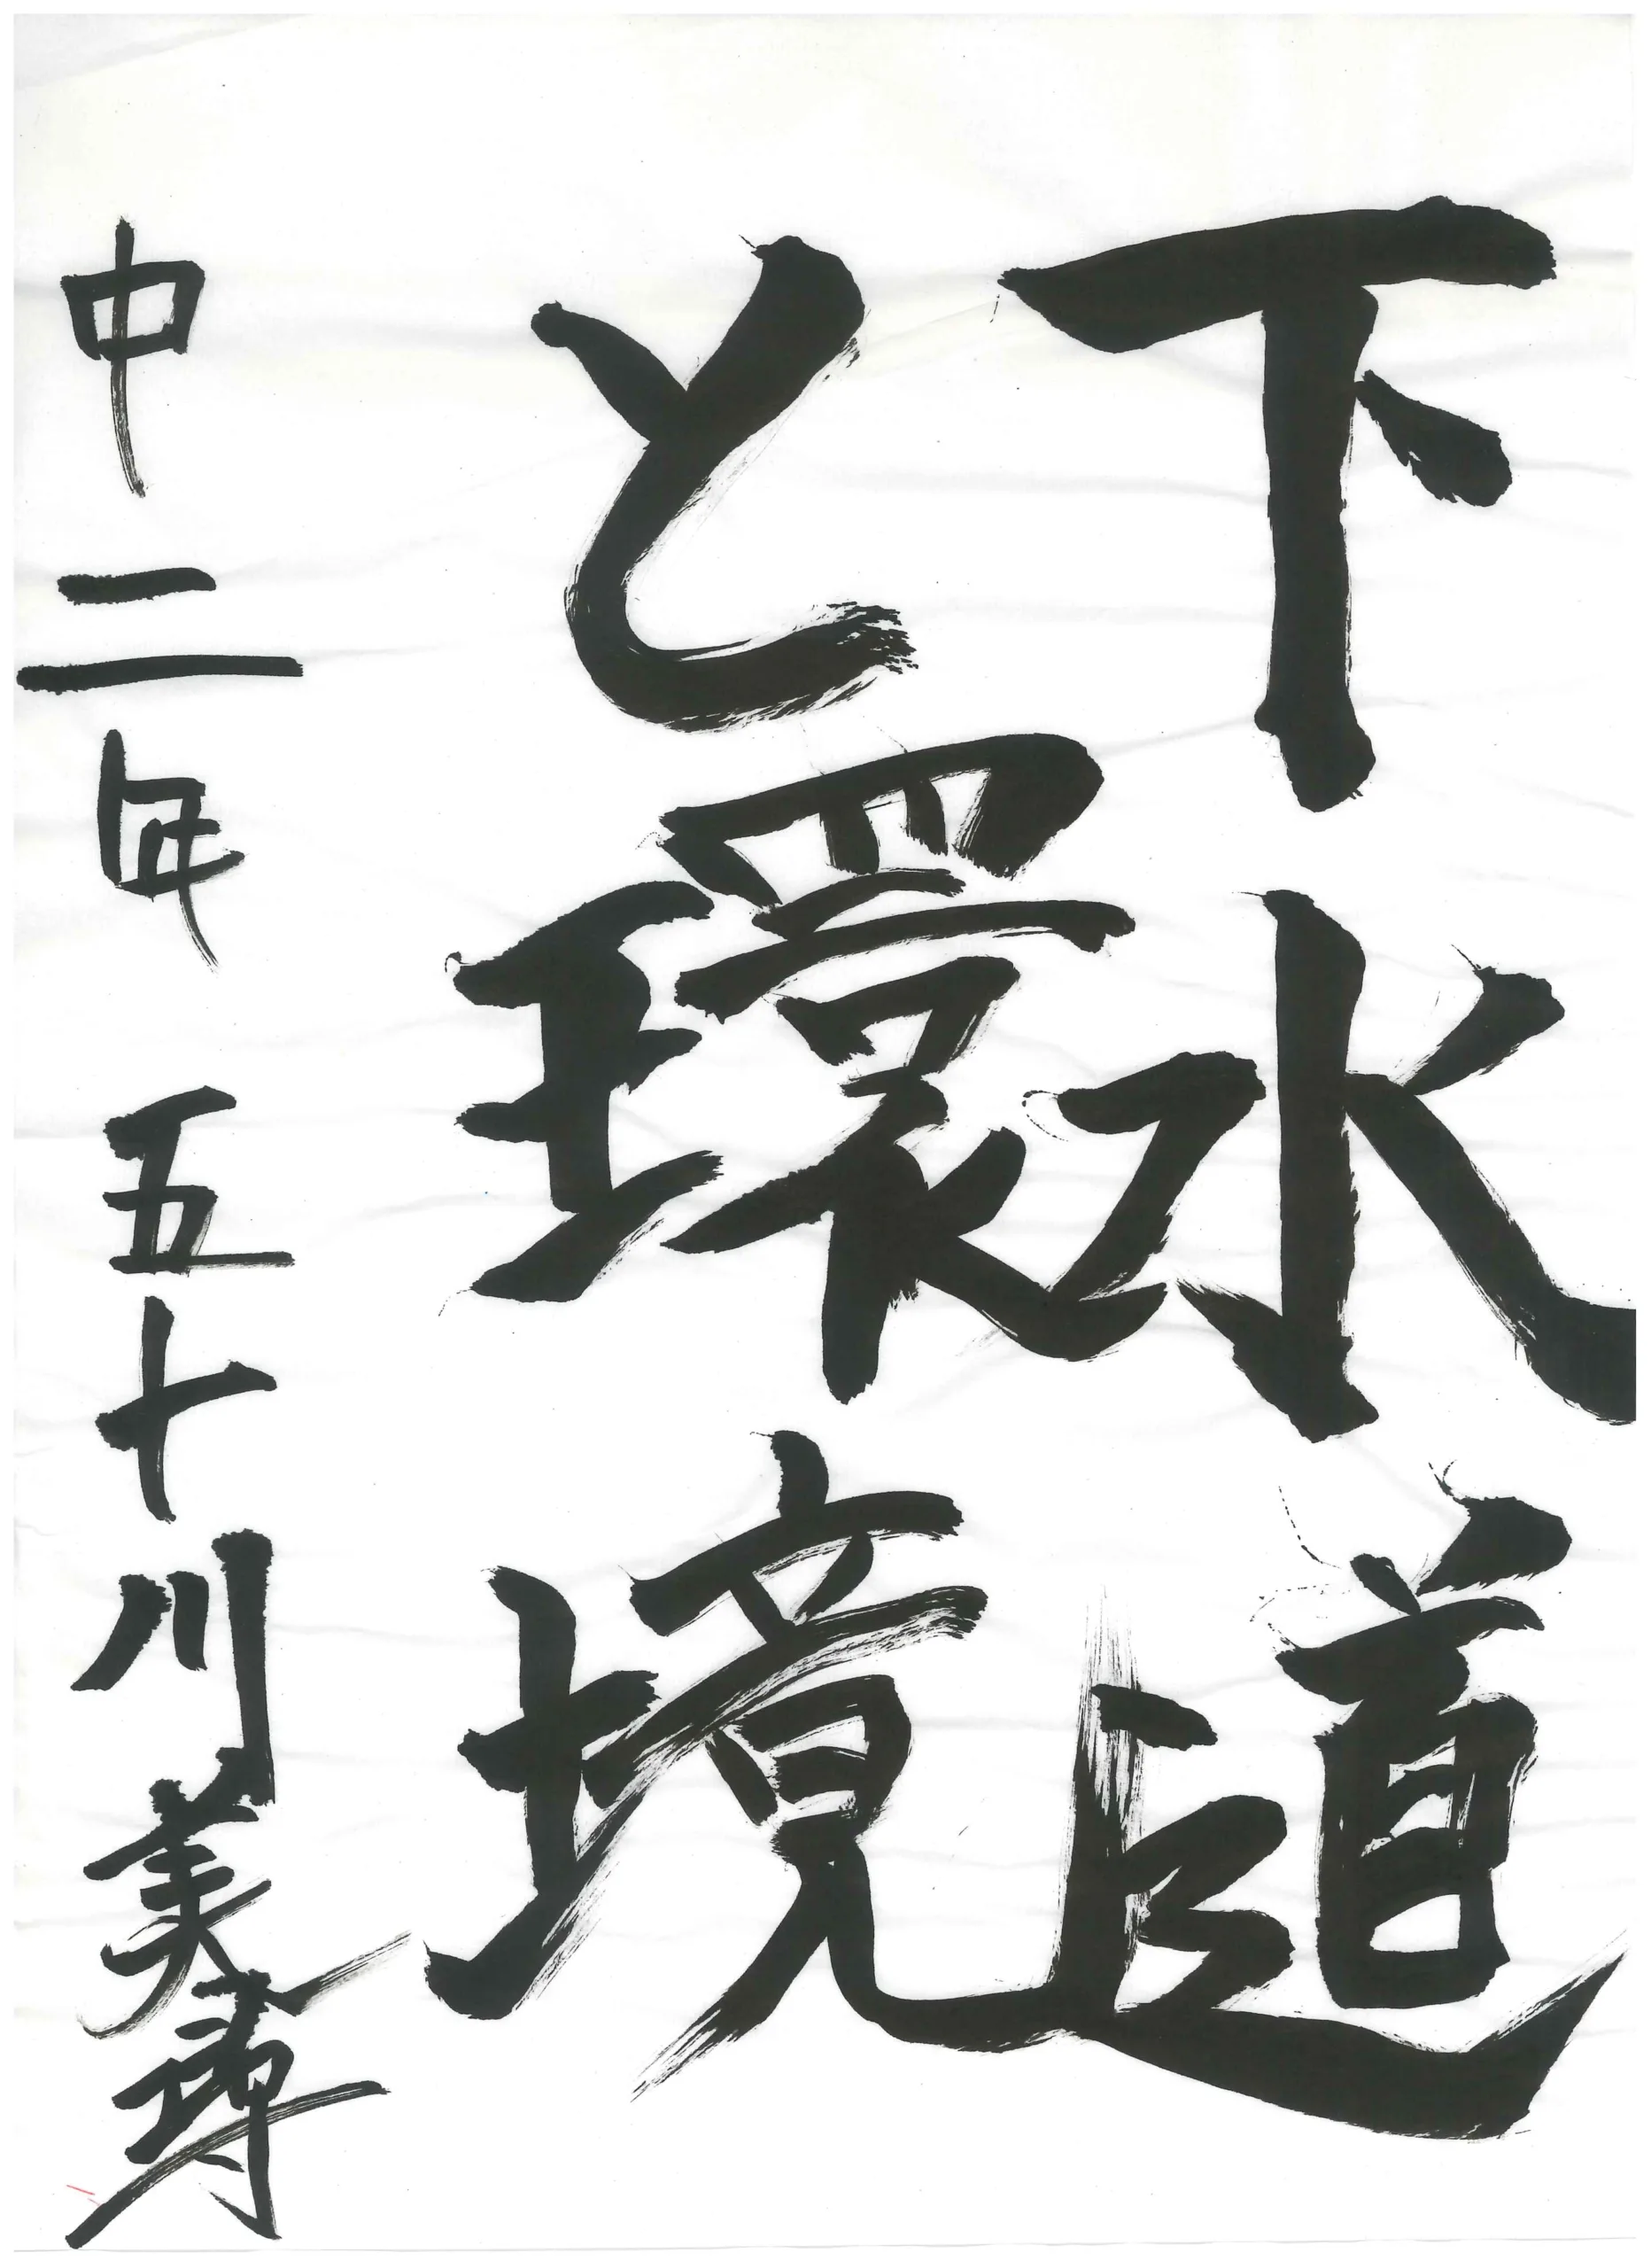 下水道
と環境
中二年 五十川美尋